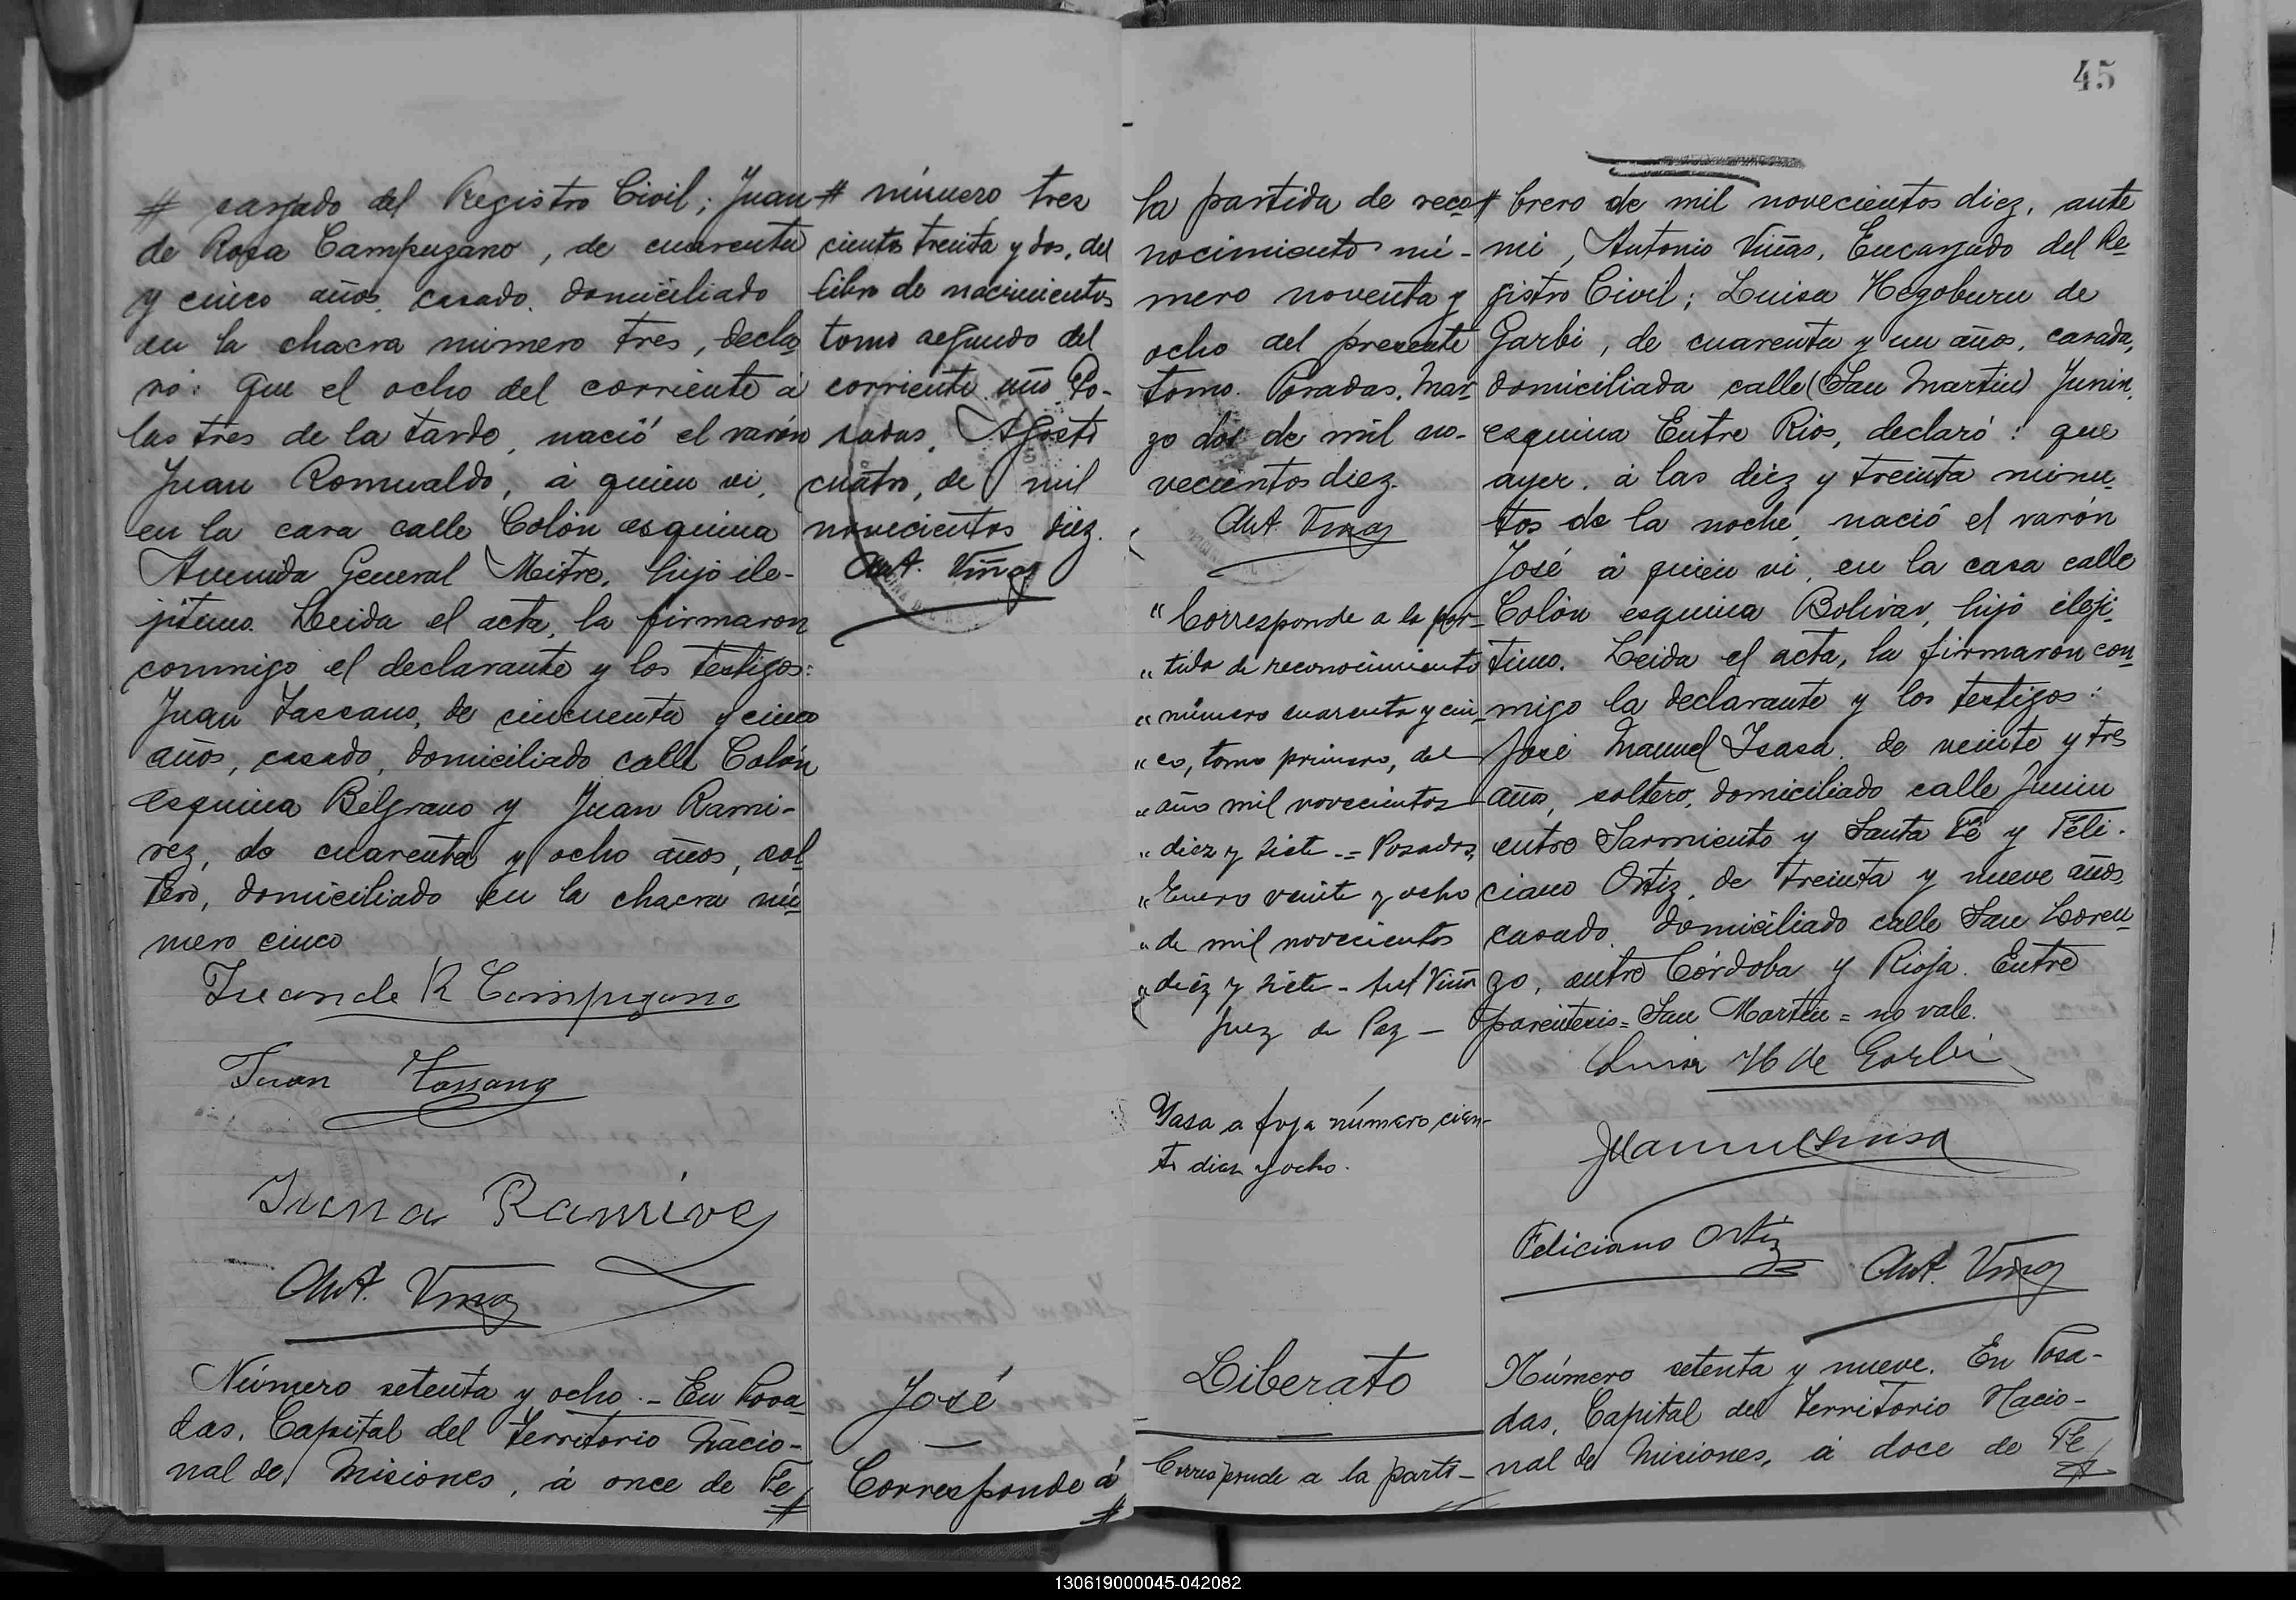 # cargado del Registro Civil; Juan
de Rosa Campuzano, de cuarenta
y cinco años, casado, domiciliado
en la chacra número tres, decla
ró: que el ocho del corriente á
las tres de la tarde, nació el varón
Juan Romualdo, á quien vi,
en la casa calle Colón esquina
Avenida General Mitre, hijo ile-
jitimo. Leida el acta, la firmaron
conmigo el declarante y los testigos:
Juan Tassano, de cincuenta y cinco
años, casado, domiciliado calle Colón
esquina Belgrano y Juan Rami-
rez, de cuarenta y ocho años, sol
tero, domiciliado en la chacra nú
mero cinco
Juan de R Campuzano
Juan Tassano
Juan Ramirez
Ant. Viñas
Número setenta y ocho.- En Posa
das, Capital del Territorio Nacio-
nal de Misiones, á once de Fe
#
# número tres
cientos treinta y dos, del
libro de nacimientos
tomo segundo del
corriente año. Po-
sadas, Agosto
cuatro, de mil
novecientos diez.
Ant. Viñas
José
Corresponde á
#
45
la partida de reco
nocimiento nú-
mero noventa y
ocho del presente
tomo. Posadas, Mar
zo dos de mil no-
vecientos diez.
Ant. Viñas
"Corresponde a la par-
"tida de reconocimiento
"número cuarenta y cin-
"co, tomo primero, del
"año mil novecientos
"diez y siete -= Posadas,
"Enero veinte y ocho
"de mil novecientos
"diez y siete - Ant Viñas
Juez de Paz -
Pasa a foja número cien-
to diez y ocho.
Liberato
Corresponde a la parti-
# brero de mil novecientos diez, ante
mi, Antonio Viñas, Encargado del Re
gistro Civil; Luisa Hegoburu de
Garbi, de cuarenta y un años, casada,
domiciliada calle (San Martin) Junin,
esquina Entre Rios, declaró: que
ayer, á las diez y treinta minu
tos de la noche, nació el varón
José á quien vi, en la casa calle
Colón esquina Bolivar, hijo ileji
timo. Leida el acta, la firmaron con
migo la declarante y los testigos:
José Manuel Isasa, de veinte y tres
años, soltero, domiciliado calle Junin
entre Sarmiento y Santa Fé y Feli-
ciano Ortiz, de treinta y nueve años
casado, domiciliado calle San Loren
zo, entre Córdoba y Rioja. Entre
parentesis = San Martin = no vale.
Luisa H de Garbi
J Manuel Isasa
Feliciano Ortiz
Ant. Viñas
Número setenta y nueve. En Posa-
das, Capital del Territorio Nacio-
nal de Misiones, á doce de Fe
#
130619000045-042082